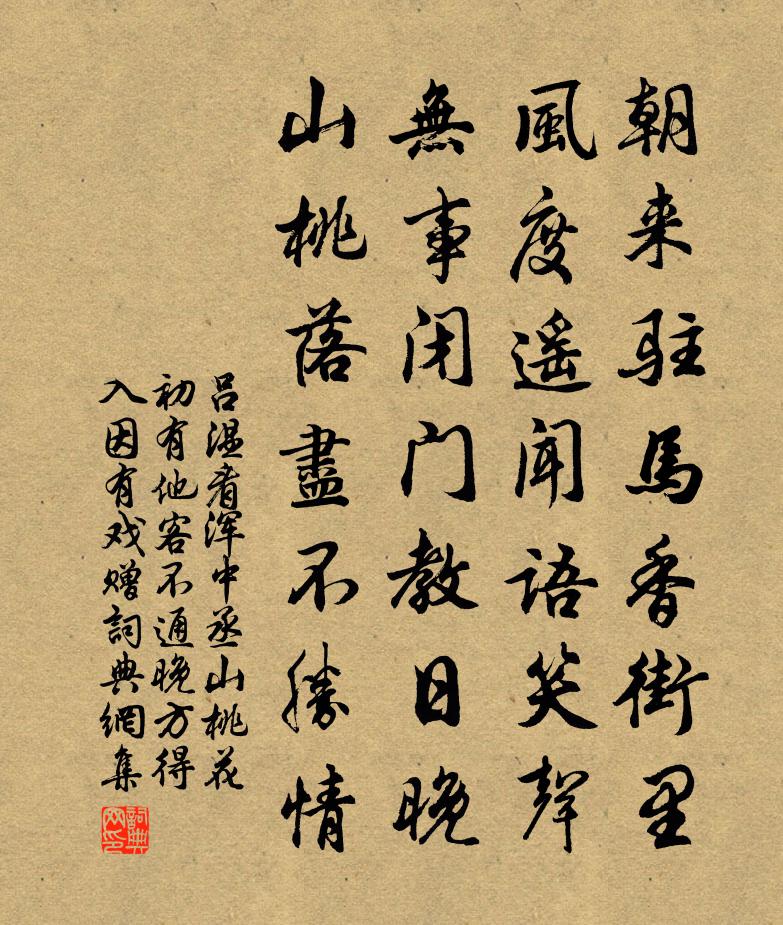 朝来駐馬香街里
風度遥聞語笑聲
無事闭门教日晚
山桃落盡不勝情
吕温看浑中丞山桃花
初有他客不通晚方得
入因有戏赠詞典網集
詞典
网印